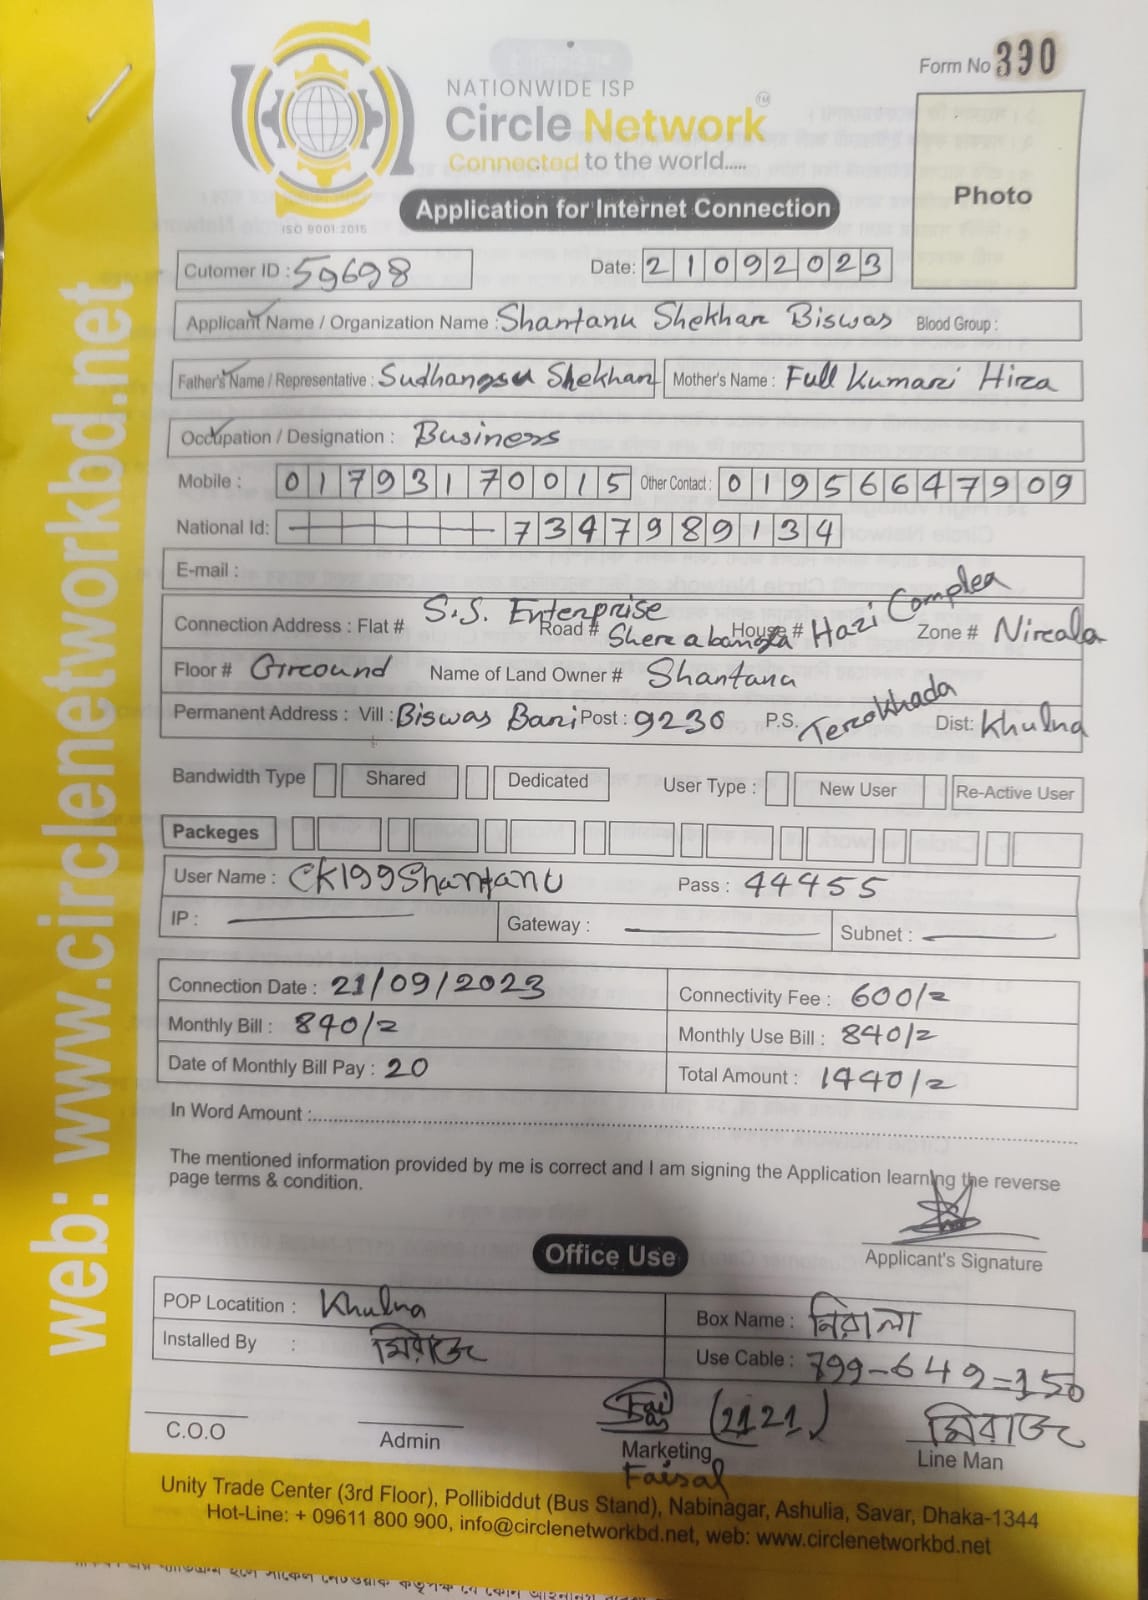 Form No 330
NATIONWIDE ISP
Circle Network
TM
Connected to the world.....
ISO 9001:2015
Application for Internet Connection
Photo
Cutomer ID : 59698
Date: 21092023
Applicant Name / Organization Name : Shantanu Shekhar Biswas Blood Group :
Father's Name / Representative : Sudhangsu Shekhar Mother's Name : Full Kumari Hira
Occupation / Designation : Business
Mobile : 01793170015 Other Contact : 01956647909
National Id: 7347989134
E-mail :
Connection Address : Flat # S.S. Enterprise Road # Shere abangla House # Hazi Complex Zone # Nirala
Floor # Ground Name of Land Owner # Shantanu
Permanent Address : Vill : Biswas Bari Post : 9230 P.S. Terokhada Dist: Khulna
Bandwidth Type Shared Dedicated User Type : New User Re-Active User
Packeges
User Name : CK199Shantanu Pass : 44455
IP : Gateway : Subnet :
Connection Date : 21/09/2023 Connectivity Fee : 600/=
Monthly Bill : 840/= Monthly Use Bill : 840/=
Date of Monthly Bill Pay : 20 Total Amount : 1440/=
In Word Amount :
The mentioned information provided by me is correct and I am signing the Application learning the reverse
page terms & condition.
Applicant's Signature
Office Use
POP Locatition : Khulna Box Name : নিরালা
Installed By : মিরাজ Use Cable : 799-649=150
C.O.O
Admin
(2121)
Marketing
Faisal
মিরাজ
Line Man
Unity Trade Center (3rd Floor), Pollibiddut (Bus Stand), Nabinagar, Ashulia, Savar, Dhaka-1344
Hot-Line: + 09611 800 900, info@circlenetworkbd.net, web: www.circlenetworkbd.net
web: www.circlenetworkbd.net